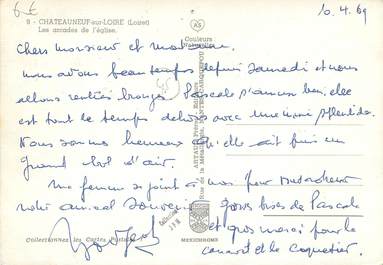 6€
10.4.69
9 - CHATEAUNEUF-sur-LOIRE (Loiret)
Les arcades de l'église.
Couleurs
Cher monsieur et madame.
nous avons beau temps depuis Samedi et nous
allons rentrés bronzés. Pascale s'amuse bien, elle
est tout le temps dehors avec une mine splendide.
Nous sommes heureux qu'elle ait fait un
grand bol d'air.
Ma femme se joint à moi pour
notre amical souvenir
gros bises de Pascale
et gros merci pour le
canard et le coquetier.
Collectionnez les Cartes Postales
MEXICHROME